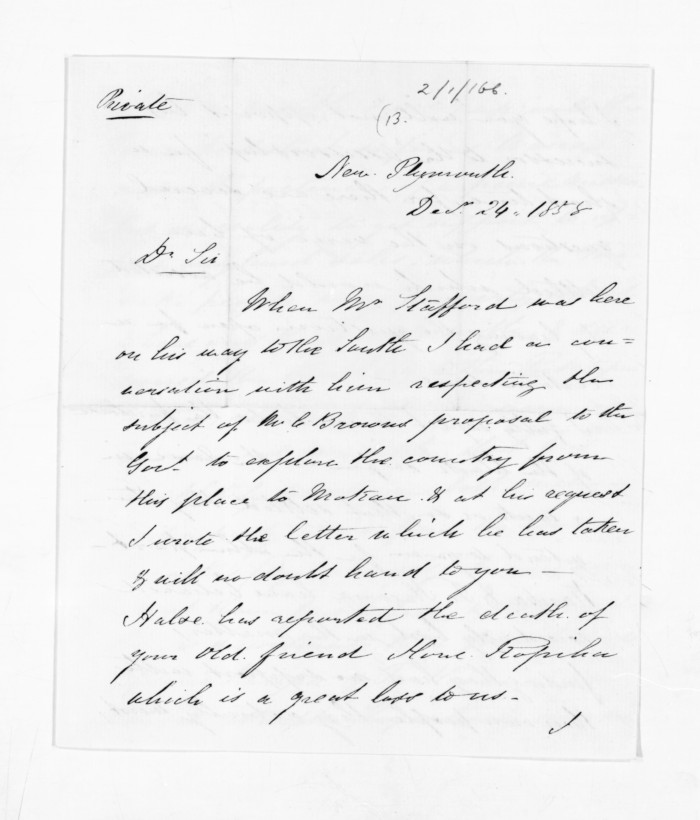 2/1/166.
Private
(13.
New Plymouth.
Decr. 24. 1858
Dr Sir
When Mr Stafford was here
on his way to the South I had a con=
versation with him respecting the
subject of Mr C Browns proposal to the
Govt. to explore the country from
this place to Mokau & at his request
I wrote the letter which he has taken
& will no doubt hand to you —
Halse has reported the death of
your old friend Hone Ropiha
which is a great loss to us -
I